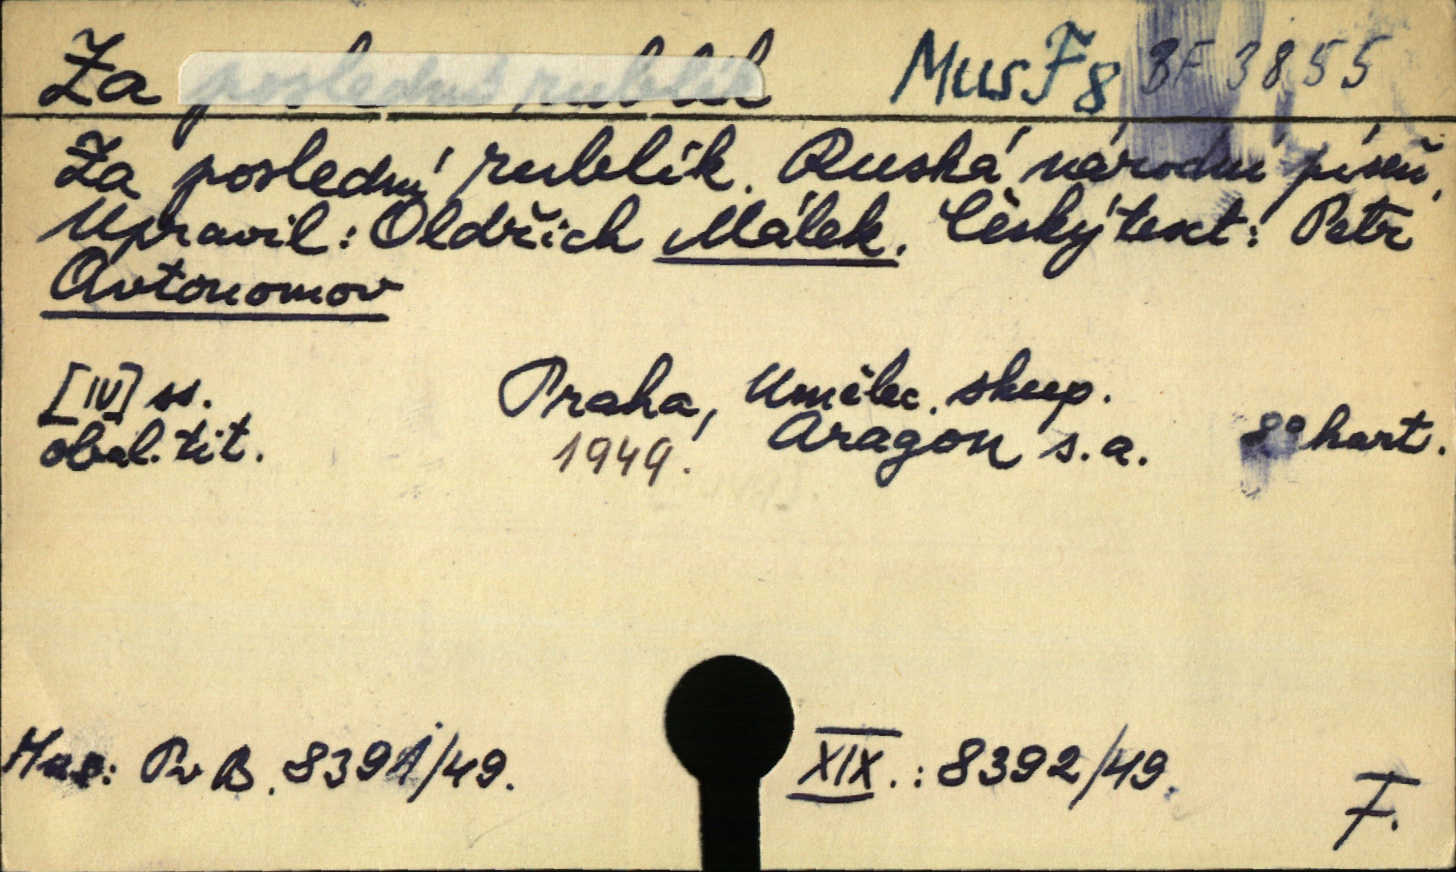 Za poslední rublík MusF8 BF 3855
Za poslední rublík. Ruská národní píseň.
Upravil: Oldřich Málek. Český text: Petr
Avtonomov
[IV] ss. Praha, Umělec. skup.
obal. tit. 1949. Aragon s.a. 8° kart.
Mus: Pv B. 8391/49. XIX.: 8392/49.
F.